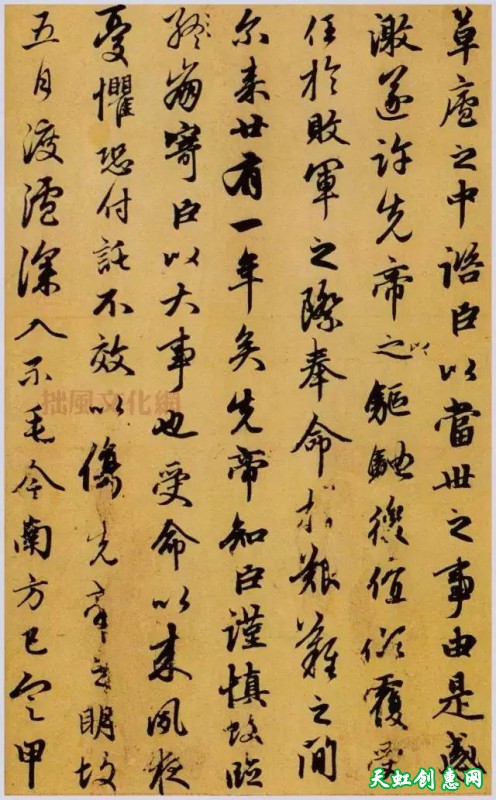 草廬之中諮臣以當世之事由是感
激遂許先帝之以驅馳後值傾覆受
任於敗軍之際奉命於艱難之間
尔来廿有一年矣先帝知臣謹慎故臨
崩寄臣以大事也受命以来夙夜
憂懼恐付託不效以傷先帝之明故
五月渡瀘深入不毛今南方已定甲
拙風文化網
天虹创惠网